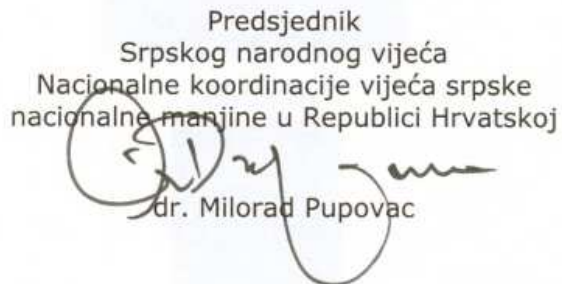 Predsjednik
Srpskog narodnog vijeća
Nacionalne koordinacije vijeća srpske
nacionalne manjine u Republici Hrvatskoj
dr. Milorad Pupovac